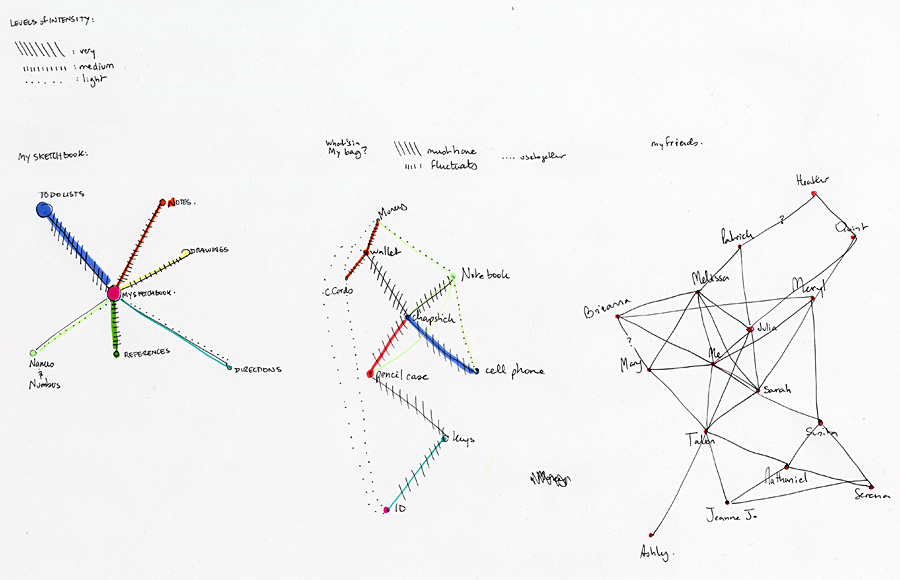 LEVELS of INTENSITY:
: very
: medium
: light
MY SKETCHBOOK:
TO DO LISTS
NOTES.
DRAWINGS
MYSKETCHBOOK.
REFERENCES
Names
&
Numbers
DIRECTIONS
What's in
My bag?
must have
fluctuates
use together
Money
wallet
C.Cards
Notebook
chapstick
pencil case
cell phone
keys
ID
my friends.
Heather
?
Quint
Patrick
Melissa
Meryl
Brianna
Julia
?
Mary
Me
Sarah
Talon
Nathaniel
Serena
Jeanne Jo
Ashley.